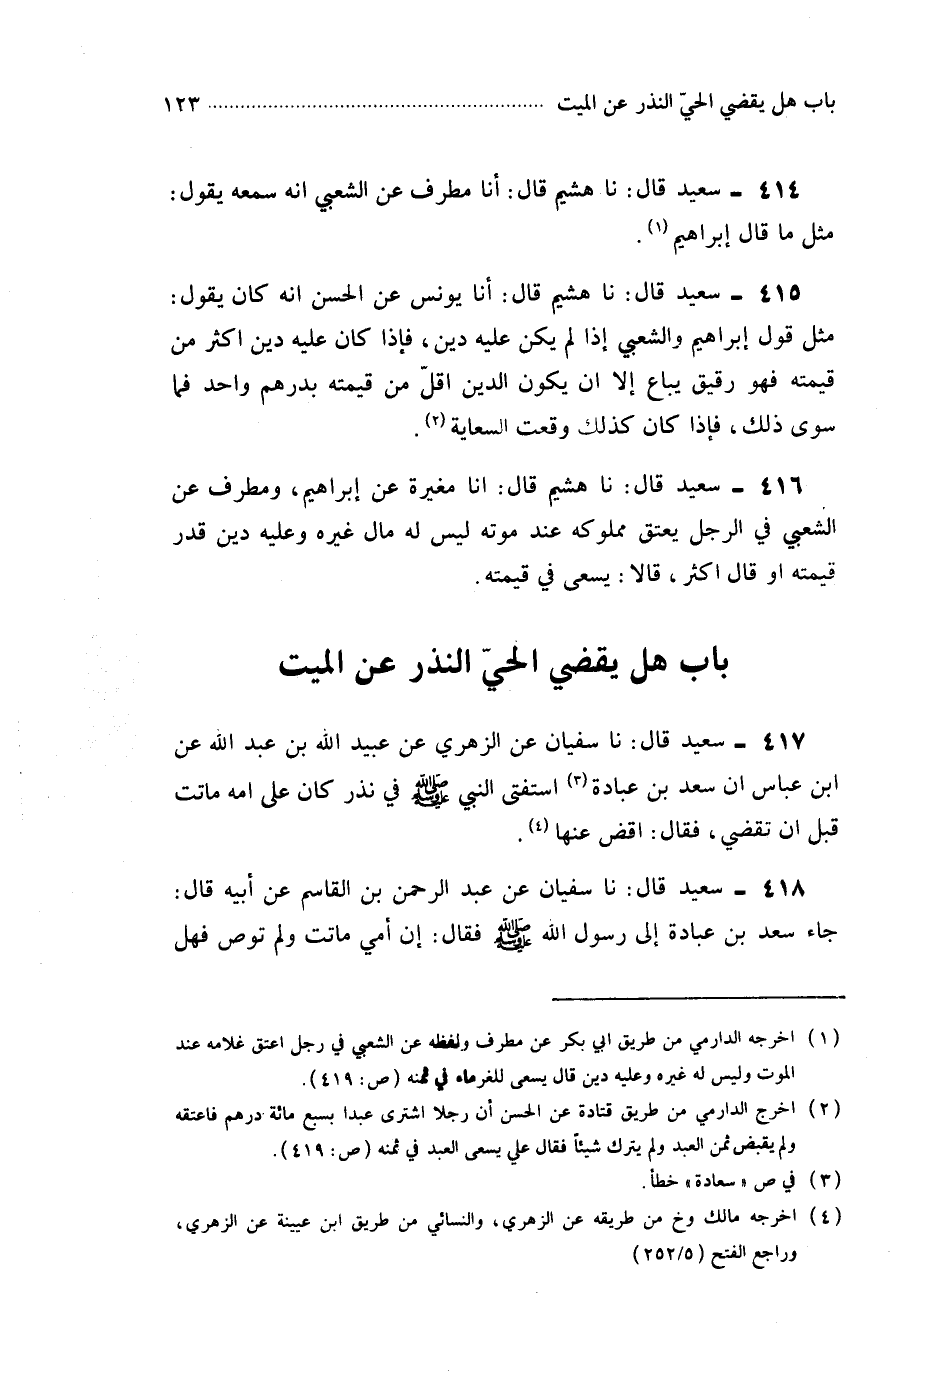 باب هل يقضي الحيّ النذر عن الميت ........................................................ ١٢٣
٤١٤ ـ سعيد قال: نا هشيم قال: أنا مطرف عن الشعبي انه سمعه يقول:
مثل ما قال إبراهيم (١) .
٤١٥ ـ سعيد قال: نا هشيم قال: أنا يونس عن الحسن انه كان يقول:
مثل قول إبراهيم والشعبي إذا لم يكن عليه دين، فإذا كان عليه دين اكثر من
قيمته فهو رقيق يباع إلا ان يكون الدين اقلّ من قيمته بدرهم واحد فما
سوى ذلك، فإذا كان كذلك وقعت السعاية (٢) .
٤١٦ ـ سعيد قال: نا هشيم قال: انا مغيرة عن إبراهيم، ومطرف عن
الشعبي في الرجل يعتق مملوكه عند موته ليس له مال غيره وعليه دين قدر
قيمته او قال اكثر، قالا: يسعى في قيمته.
باب هل يقضي الحيّ النذر عن الميت
٤١٧ ـ سعيد قال: نا سفيان عن الزهري عن عبيد الله بن عبد الله عن
ابن عباس ان سعد بن عبادة (٣) استفتى النبي ﷺ في نذر كان على امه ماتت
قبل ان تقضي، فقال: اقض عنها (٤) .
٤١٨ ـ سعيد قال: نا سفيان عن عبد الرحمن بن القاسم عن أبيه قال:
جاء سعد بن عبادة إلى رسول الله ﷺ فقال: إن أمي ماتت ولم توص فهل
(١) اخرجه الدارمي من طريق ابي بكر عن مطرف ولفظه عن الشعبي في رجل اعتق غلامه عند
الموت وليس له غيره وعليه دين قال يسعى للغرماء في ثمنه (ص: ٤١٩).
(٢) اخرج الدارمي من طريق قتادة عن الحسن أن رجلا اشترى عبدا بسبع مائة درهم فاعتقه
ولم يقبض ثمن العبد ولم يترك شيئاً فقال علي يسعى العبد في ثمنه (ص: ٤١٩).
(٣) في ص «سعادة» خطأ.
(٤) اخرجه مالك وخ من طريقه عن الزهري، والنسائي من طريق ابن عيينة عن الزهري،
وراجع الفتح (٢٥٢/٥)